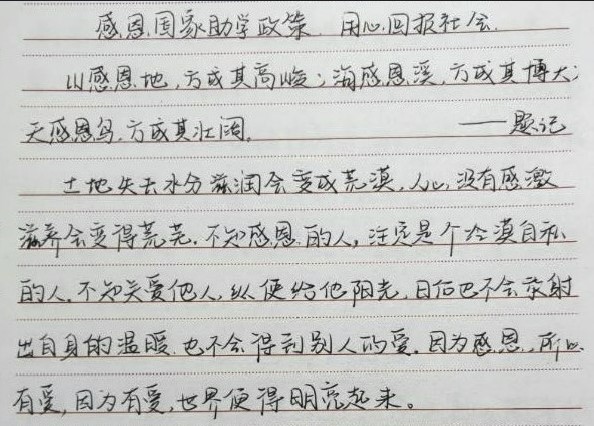 感恩国家助学政策 用心回报社会.
山感恩地,方成其高峻;海感恩溪,方成其博大;
天感恩鸟,方成其壮阔.
——题记
土地失去水分滋润会变成荒漠,人心没有感激
滋养会变得荒芜.不知感恩的人,注定是个冷漠自私
的人.不知关爱他人,纵使给他阳光,日后也不会放射
出自身的温暖.也不会得到别人的爱.因为感恩,所以
有爱,因为有爱,世界便得明亮起来。